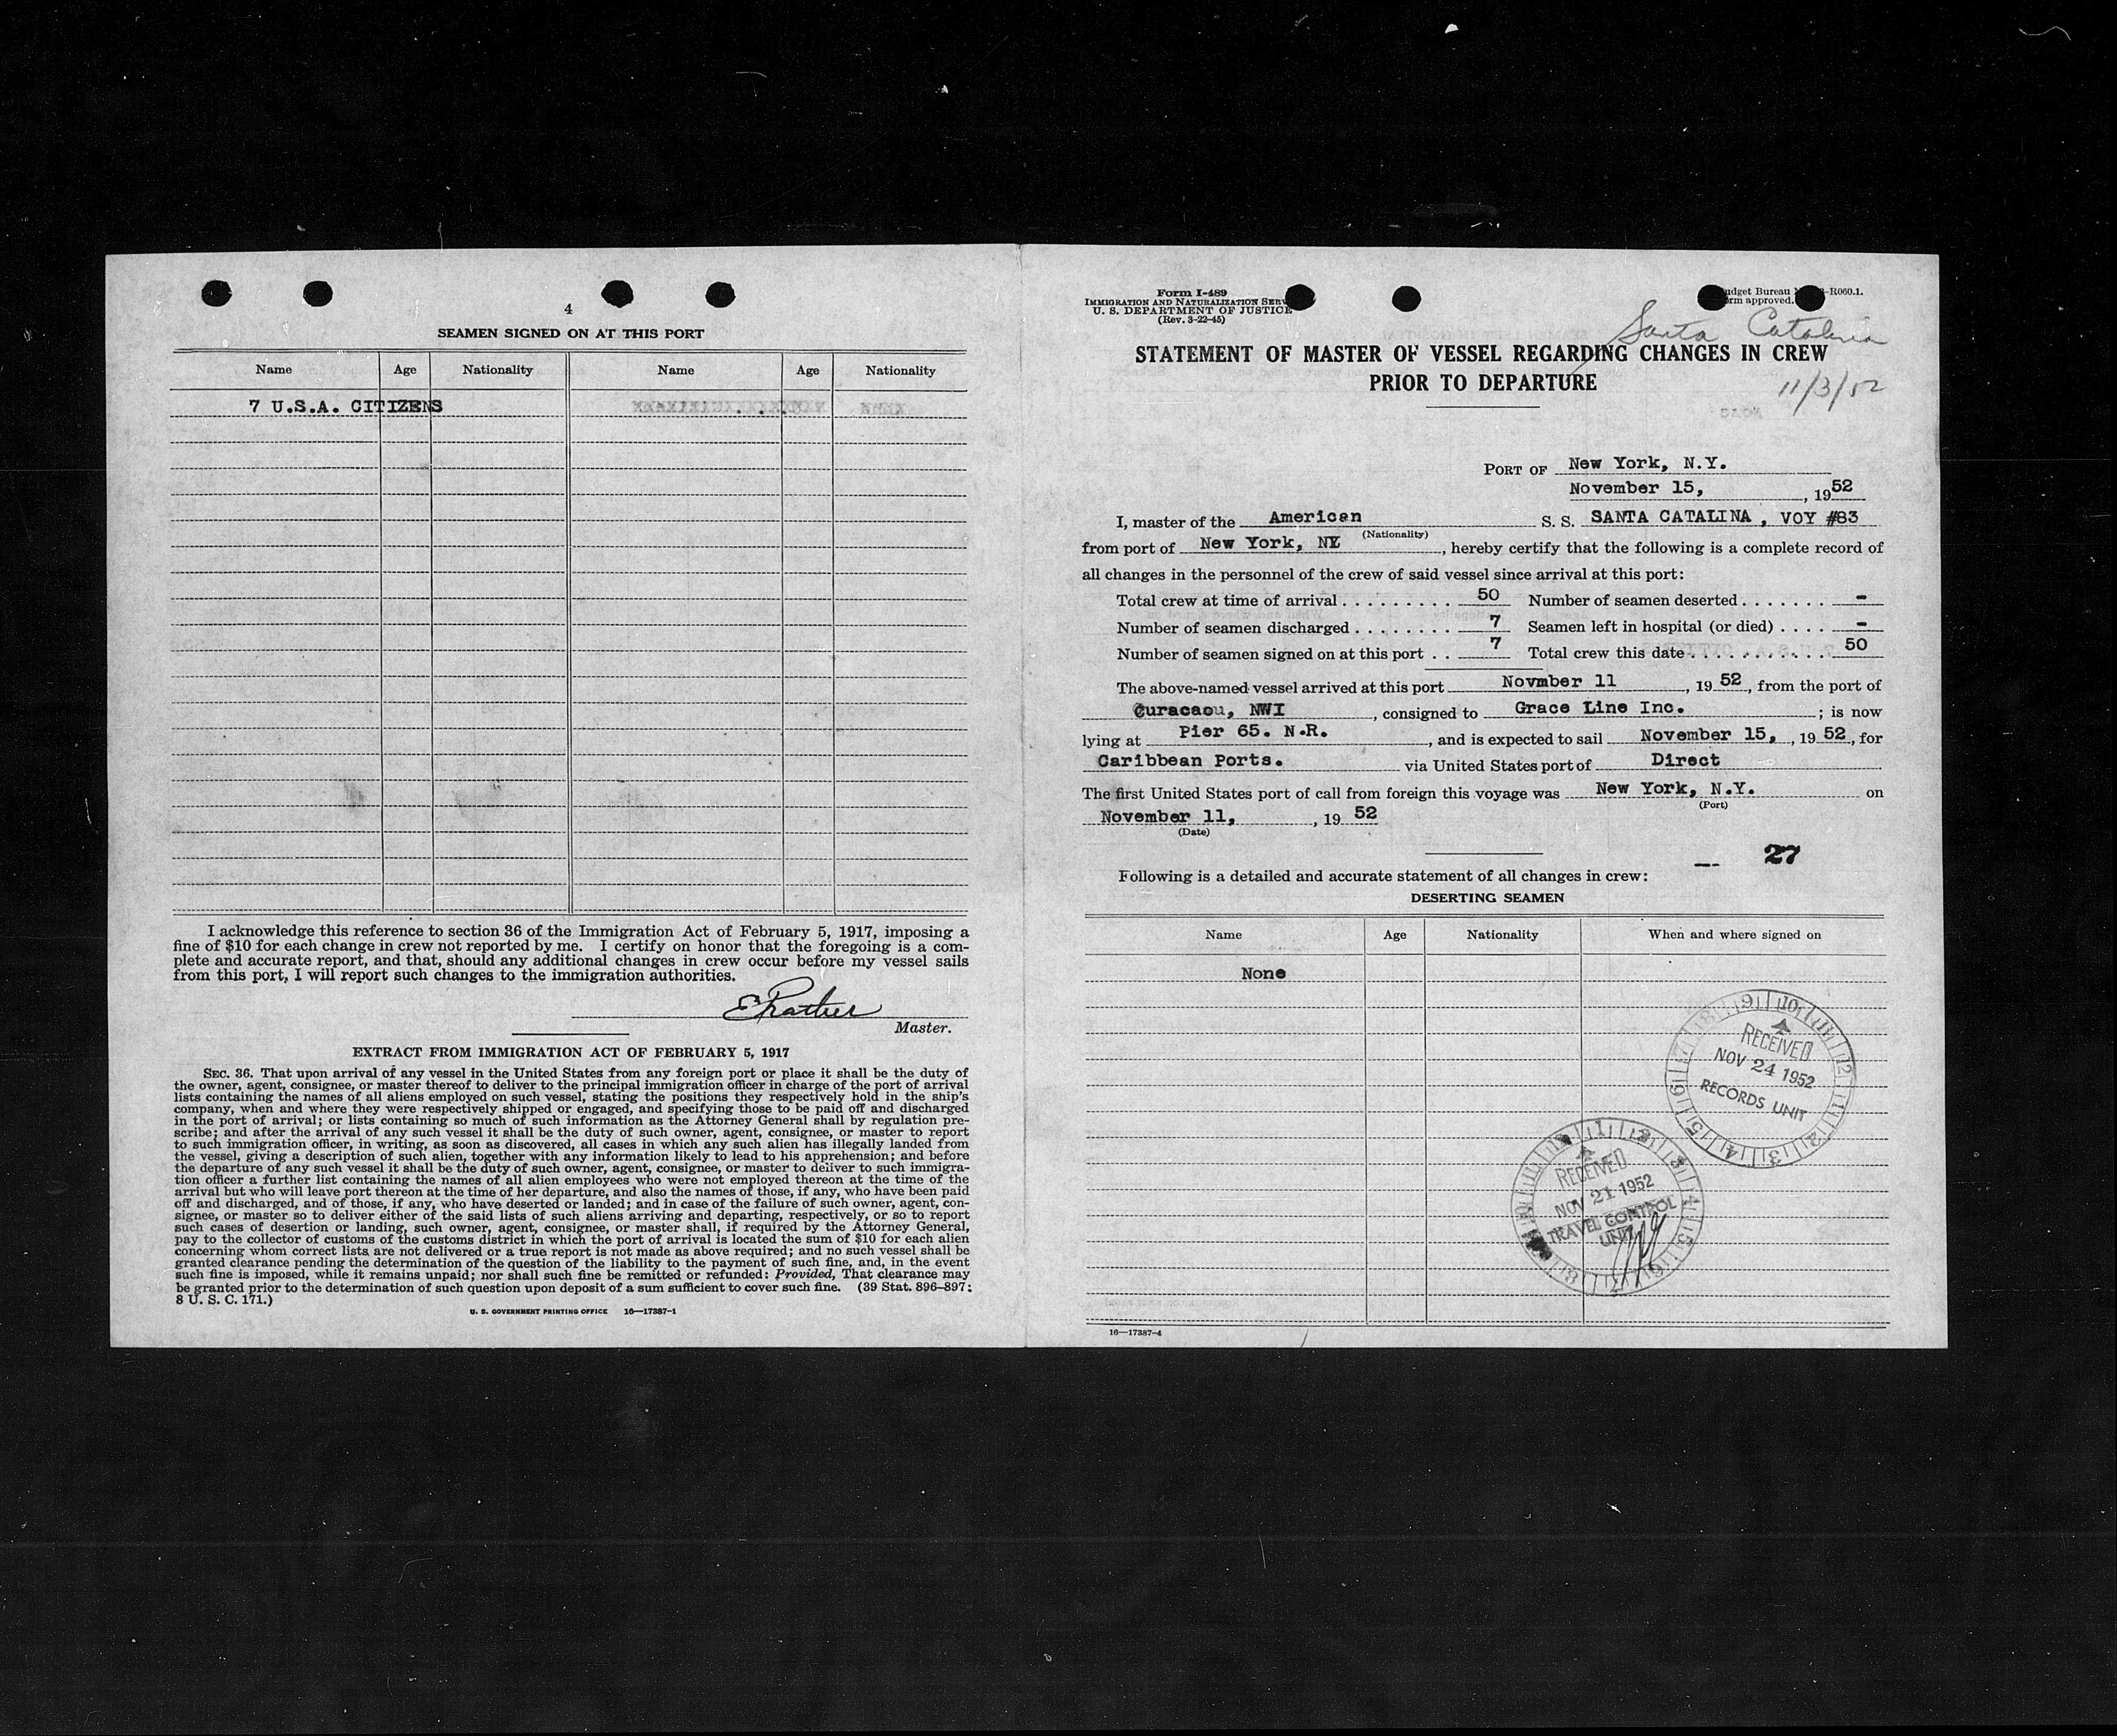 4
SEAMEN SIGNED ON AT THIS PORT
Name Age Nationality Name Age Nationality
7 U.S.A. CITIZENS
I acknowledge this reference to section 36 of the Immigration Act of February 5, 1917, imposing a
fine of $10 for each change in crew not reported by me. I certify on honor that the foregoing is a com-
plete and accurate report, and that, should any additional changes in crew occur before my vessel sails
from this port, I will report such changes to the immigration authorities.
Master.
EXTRACT FROM IMMIGRATION ACT OF FEBRUARY 5, 1917
SEC. 36. That upon arrival of any vessel in the United States from any foreign port or place it shall be the duty of
the owner, agent, consignee, or master thereof to deliver to the principal immigration officer in charge of the port of arrival
lists containing the names of all aliens employed on such vessel, stating the positions they respectively hold in the ship's
company, when and where they were respectively shipped or engaged, and specifying those to be paid off and discharged
in the port of arrival; or lists containing so much of such information as the Attorney General shall by regulation pre-
scribe; and after the arrival of any such vessel it shall be the duty of such owner, agent, consignee, or master to report
to such immigration officer, in writing, as soon as discovered, all cases in which any such alien has illegally landed from
the vessel, giving a description of such alien, together with any information likely to lead to his apprehension; and before
the departure of any such vessel it shall be the duty of such owner, agent, consignee, or master to deliver to such immigra-
tion officer a further list containing the names of all alien employees who were not employed thereon at the time of the
arrival but who will leave port thereon at the time of her departure, and also the names of those, if any, who have been paid
off and discharged, and of those, if any, who have deserted or landed; and in case of the failure of such owner, agent, con-
signee, or master so to deliver either of the said lists of such aliens arriving and departing, respectively, or so to report
such cases of desertion or landing, such owner, agent, consignee, or master shall, if required by the Attorney General,
pay to the collector of customs of the customs district in which the port of arrival is located the sum of $10 for each alien
concerning whom correct lists are not delivered or a true report is not made as above required; and no such vessel shall be
granted clearance pending the determination of the question of the liability to the payment of such fine, and, in the event
such fine is imposed, while it remains unpaid; nor shall such fine be remitted or refunded: Provided, That clearance may
be granted prior to the determination of such question upon deposit of a sum sufficient to cover such fine. (39 Stat. 896–897;
8 U. S. C. 171.)
U. S. GOVERNMENT PRINTING OFFICE 16—17387-1
Form I-489
IMMIGRATION AND NATURALIZATION SERV
U. S. DEPARTMENT OF JUSTICE
(Rev. 3-22-45)
udget Bureau -R060.1.
rm approved.
Santa Catalina
STATEMENT OF MASTER OF VESSEL REGARDING CHANGES IN CREW
PRIOR TO DEPARTURE
11/3/52
PORT OF New York, N.Y.
November 15, , 1952
I, master of the American S. S. SANTA CATALINA , VOY #83
(Nationality)
from port of New York, NY , hereby certify that the following is a complete record of
all changes in the personnel of the crew of said vessel since arrival at this port:
Total crew at time of arrival . . . . . . . . . 50 Number of seamen deserted . . . . . . . -
Number of seamen discharged . . . . . . . . 7 Seamen left in hospital (or died) . . . . -
Number of seamen signed on at this port . . 7 Total crew this date . . . . . . . . . . . 50
The above-named vessel arrived at this port Novmber 11 , 19 52, from the port of
Curacaou, NWI , consigned to Grace Line Inc. ; is now
lying at Pier 65. N.R. , and is expected to sail November 15, , 19 52, for
Caribbean Ports. via United States port of Direct
The first United States port of call from foreign this voyage was New York, N.Y. on
(Port)
November 11, , 19 52
(Date)
27
Following is a detailed and accurate statement of all changes in crew:
DESERTING SEAMEN
Name Age Nationality When and where signed on
None
RECEIVED
NOV 24 1952
RECORDS UNIT
RECEIVED
NOV 21 1952
TRAVEL CONTROL
UNIT
16—17387-4